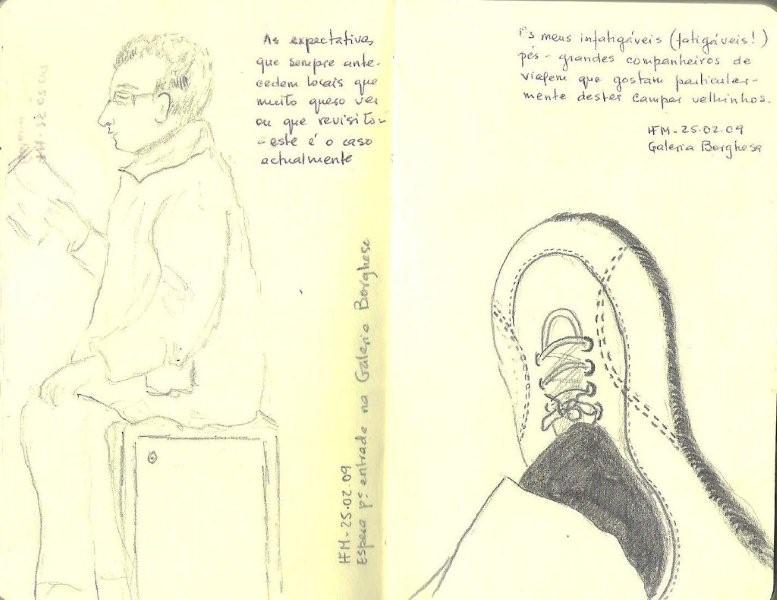 As expectativas,
que sempre ante-
cedem locais que
muito quero ver
ou que revisito-
- este é o caso
actualmente
HFM - 25.02.09
Espera pª entrada na Galeria Borghese
Os meus infatigáveis (fatigáveis!)
pés - grandes companheiros de
viagem que gostam particular-
mente destes Camper velhinhos.
HFM - 25.02.09
Galeria Borghese